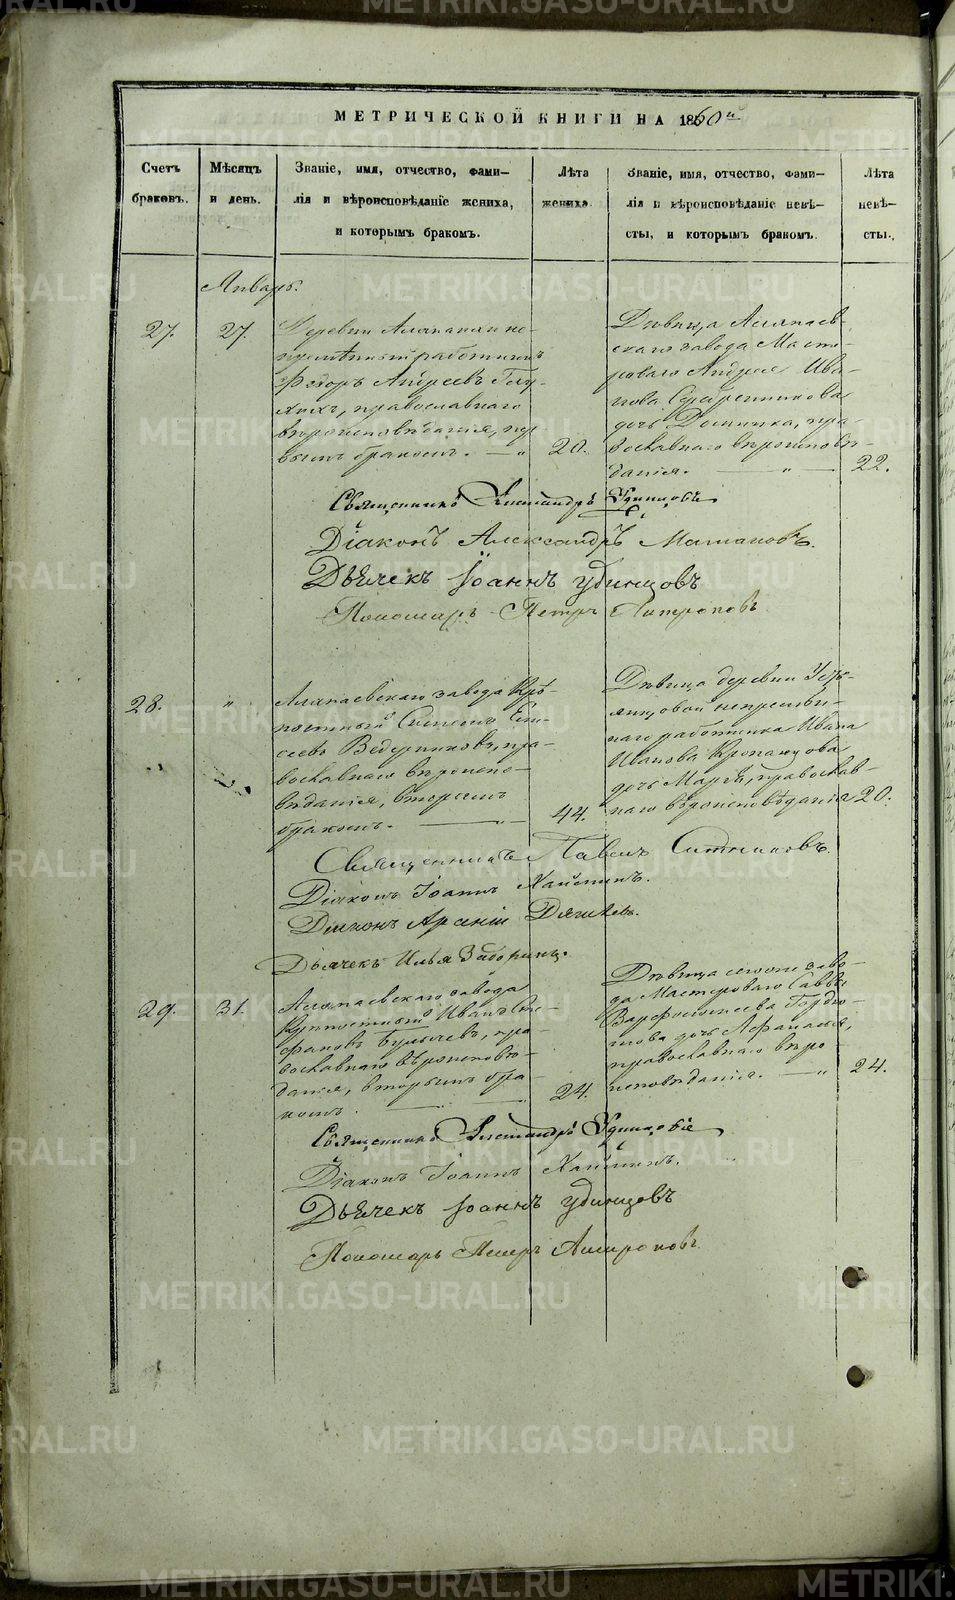 МЕТРИЧЕСКОЙ КНИГИ НА 1860й
Счетъ браковъ.
Мѣсяцъ и день.
Званіе, имя, отчество, фами-
лія и вѣроисповѣданіе жениха,
и которымъ бракомъ.
Лѣта жениха.
Званіе, имя, отчество, фами-
лія и вѣроисповѣданіе невѣ-
сты, и которымъ бракомъ.
Лѣта невѣ-
сты.
Январь.
27.
27.
Деревни Алапаихи не-
премѣнный работникъ
Ѳедоръ Андреевъ Глу-
хихъ, православнаго
вѣроисповѣданія, пер
вымъ бракомъ. — „
20.
Дѣвица Алапаев-
скаго завода Масте-
роваго Андрея Ива-
нова Серебренникова
дочь Домника, пра-
вославнаго вѣроисповѣ-
данія. — „ —
22.
Священникъ Александръ Удинцовъ
Діаконъ Александръ
Дьячекъ Іоаннъ Удинцовъ
Пономарь Петръ
28.
„
Алапаевскаго завода Крѣ-
постный Симеонъ
Ведерниковъ, пра-
вославнаго вѣроиспо-
вѣданія, вторымъ
бракомъ. — „ —
44.
Дѣвица деревни Устъ-
янцовой непремѣн-
наго работника Ивана
Иванова
дочь Марѳа, православ-
наго вѣроисповѣданія
20.
Священникъ Павелъ Ситниковъ.
Діаконъ Іоаннъ
Діаконъ Арсеній Дягилевъ.
Дьячекъ Илья Заборинъ.
29.
31.
Алапаевскаго завода
Крѣпостный Иванъ Сте-
фановъ Булычевъ, пра-
вославнаго вѣроисповѣ-
данія, вторымъ бра-
комъ. — —
24.
Дѣвица сегоже заво-
да Мастероваго Саввы
Варфоломеева Горди-
нова дочь Аѳанасья,
православнаго вѣро-
исповѣданія. — „
24.
Священникъ Александръ Удинцовъ
Діаконъ Іоаннъ
Дьячекъ Іоаннъ Удинцовъ
Пономарь Петръ
METRIKI.GASO-URAL.RU